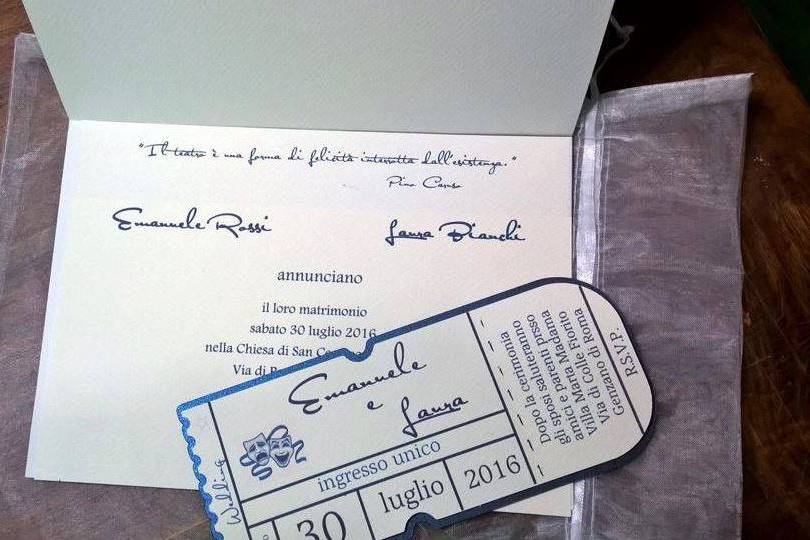 "Il teatro è una forma di felicità interrotta dall'esistenza."
Pino Caruso
Emanuele Rossi
Laura Bianchi
annunciano
il loro matrimonio
sabato 30 luglio 2016
nella Chiesa di San
Via di
Wedding
Emanuele
e
Laura
ingresso unico
30 luglio 2016
Dopo la cerimonia
gli sposi saluteranno
amici e parenti prsso
Villa Maria Madama
Via di Colle Fiorito
Genzano di Roma
R.S.V.P.